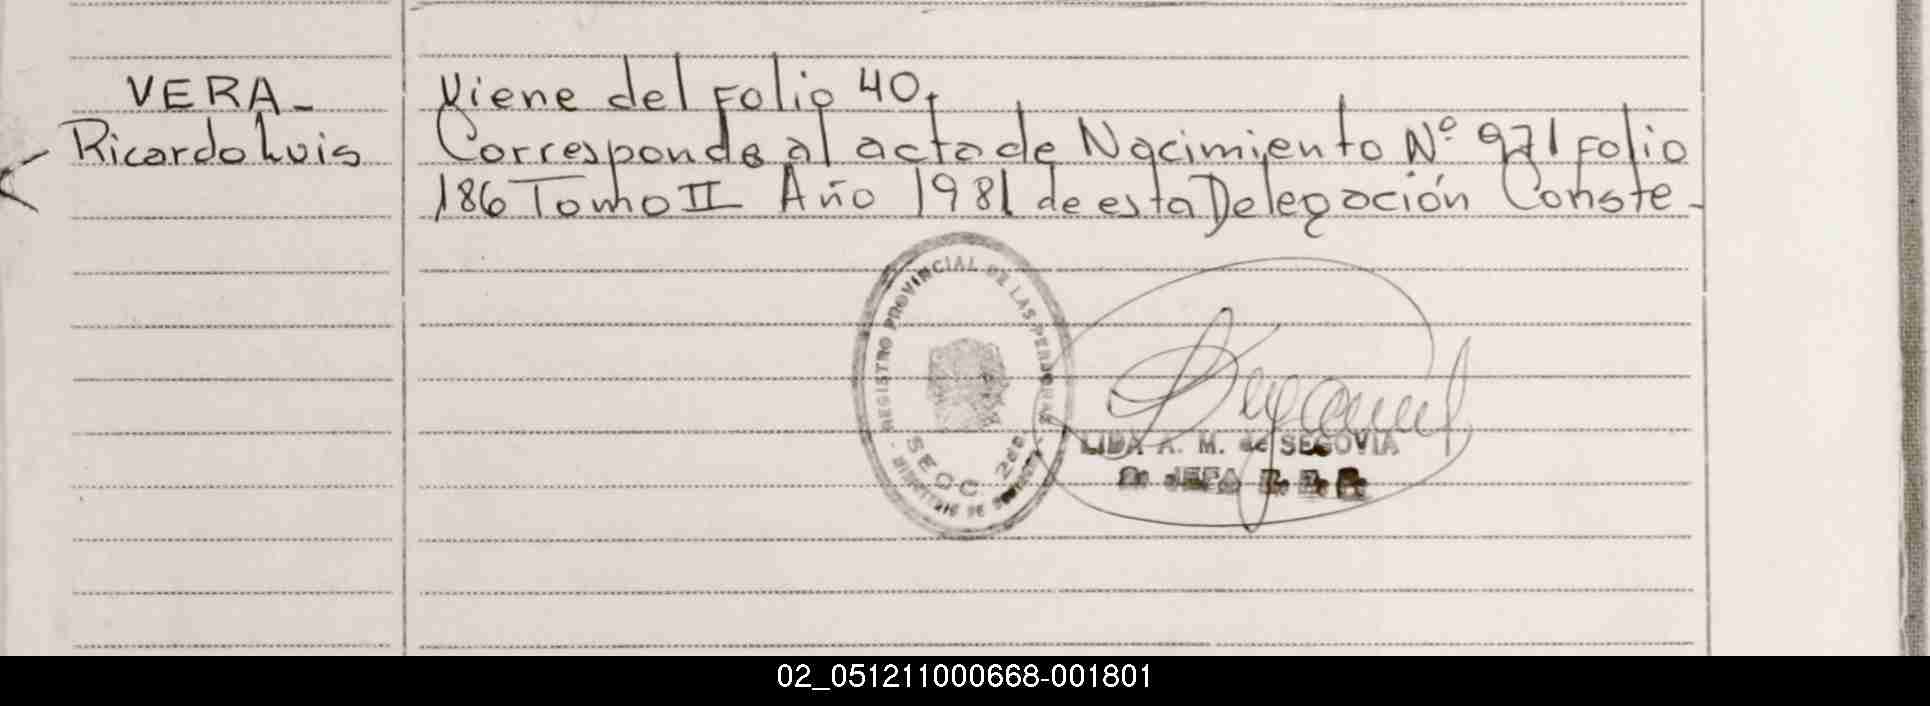 VERA-
Ricardo Luis
Viene del Folio 40.
Corresponde al acta de Nacimiento Nº 971 Folio
186 Tomo II Año 1981 de esta Delegación Conste-
REGISTRO PROVINCIAL DE LAS PERSONAS
SECC. 2da.
LIDA A. M. de SEGOVIA
JEFA
02_051211000668-001801